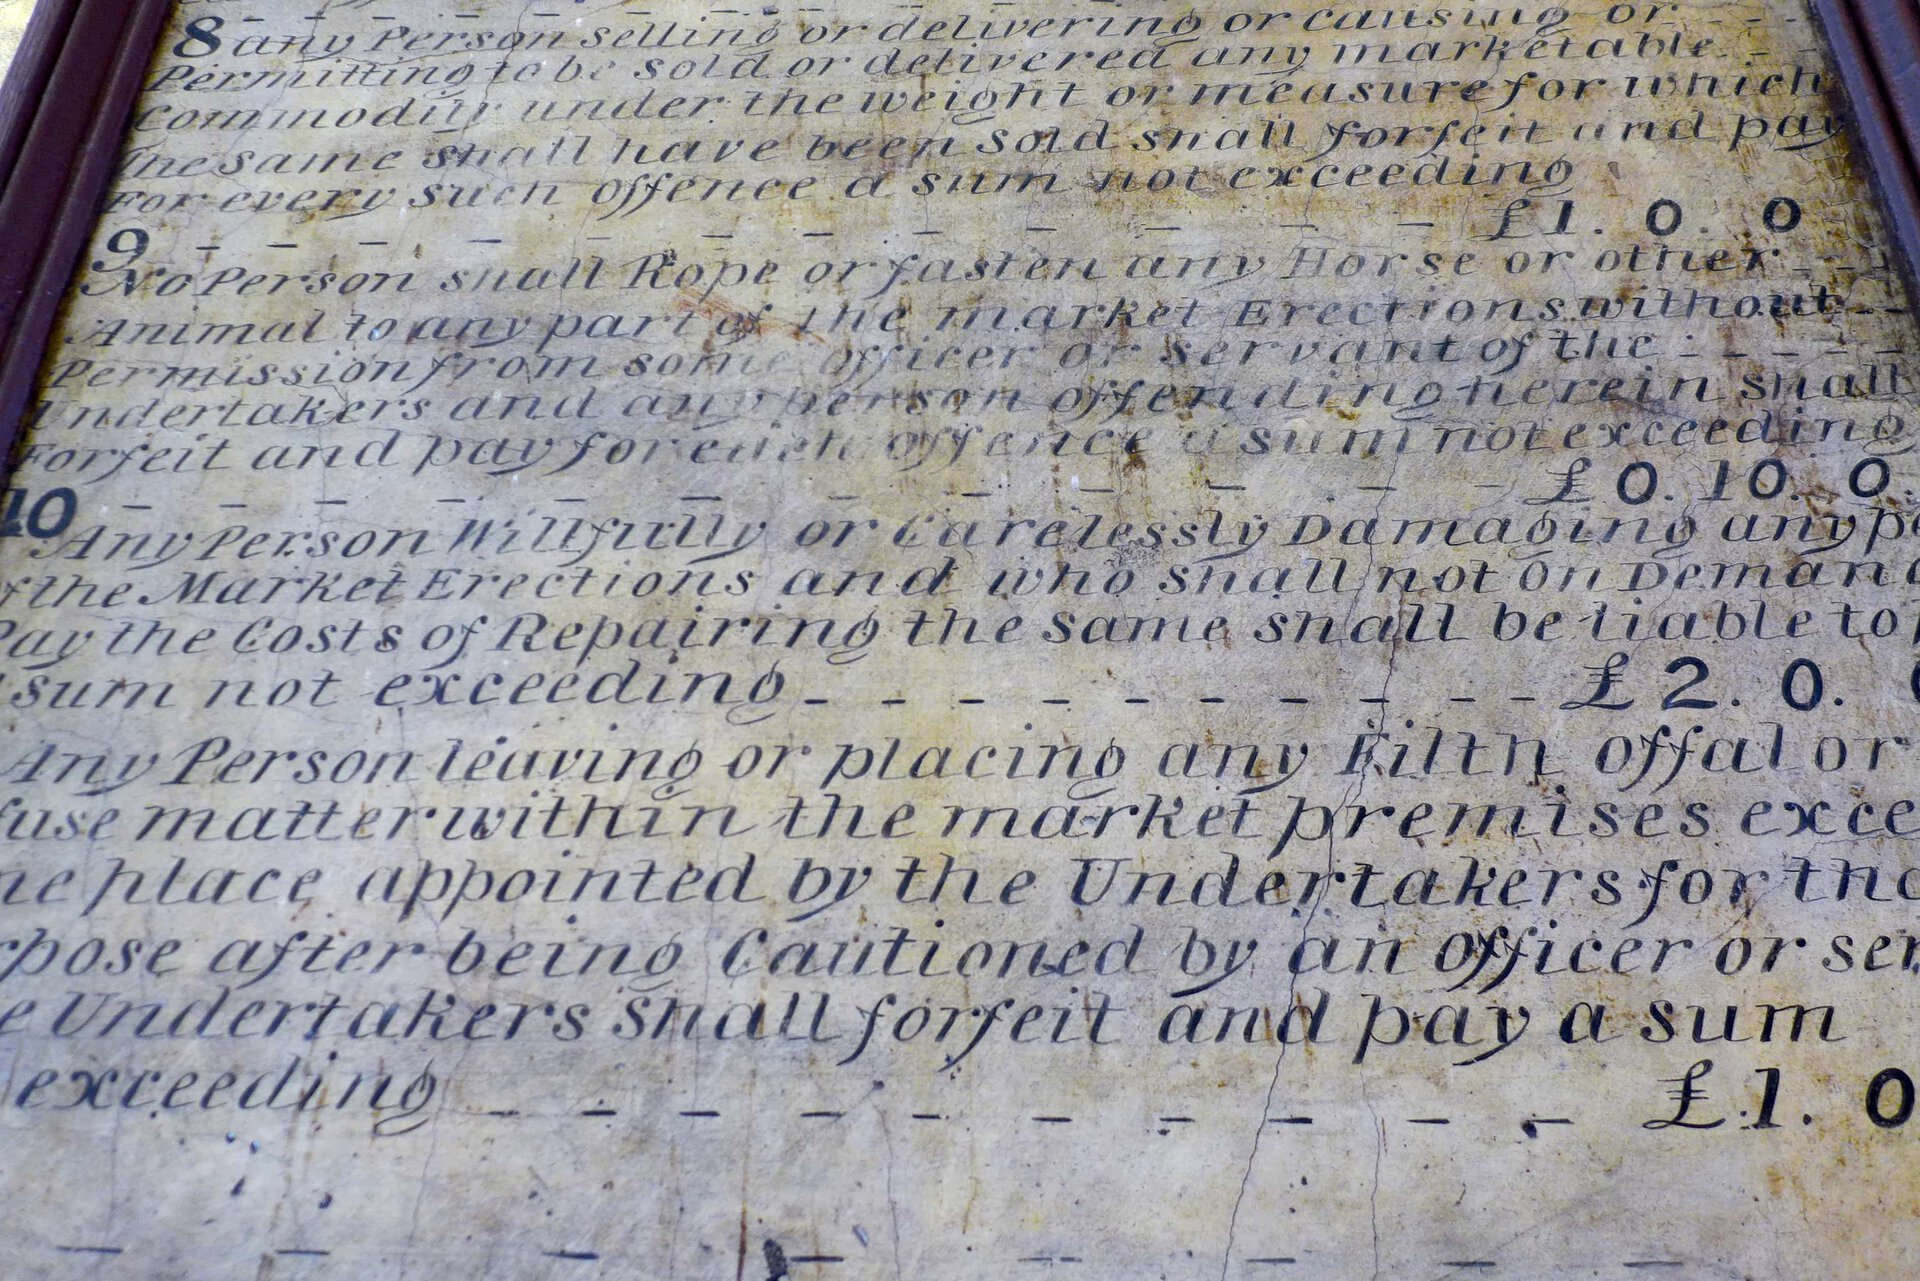 8 any Person selling or delivering or causing or - - -
Permitting to be sold or delivered any marketable - -
Commodity under the weight or measure for which
The same shall have been sold shall forfeit and pay
For every such offence a sum not exceeding
- - - - - - - - - - - - £1. 0. 0
9
No Person shall Rope or fasten any Horse or other - - -
Animal to any part of the market Erections without - -
Permission from some officer or servant of the - - - - -
Undertakers and any person offending herein shall
Forfeit and pay for each offence a sum not exceeding
- - - - - - - - - - - - - £0. 10. 0.
10
Any Person Willfully or Carelessly Damaging any
the Market Erections and who shall not on Deman
Pay the Costs of Repairing the same shall be liable to
sum not exceeding - - - - - - - - - - £2. 0.
Any Person leaving or placing any Filth offal or
fuse matter within the market premises exce
he place appointed by the Undertakers for tha
rpose after being Cautioned by an officer or ser
e Undertakers Shall forfeit and pay a sum
exceeding - - - - - - - - - - £.1. 0